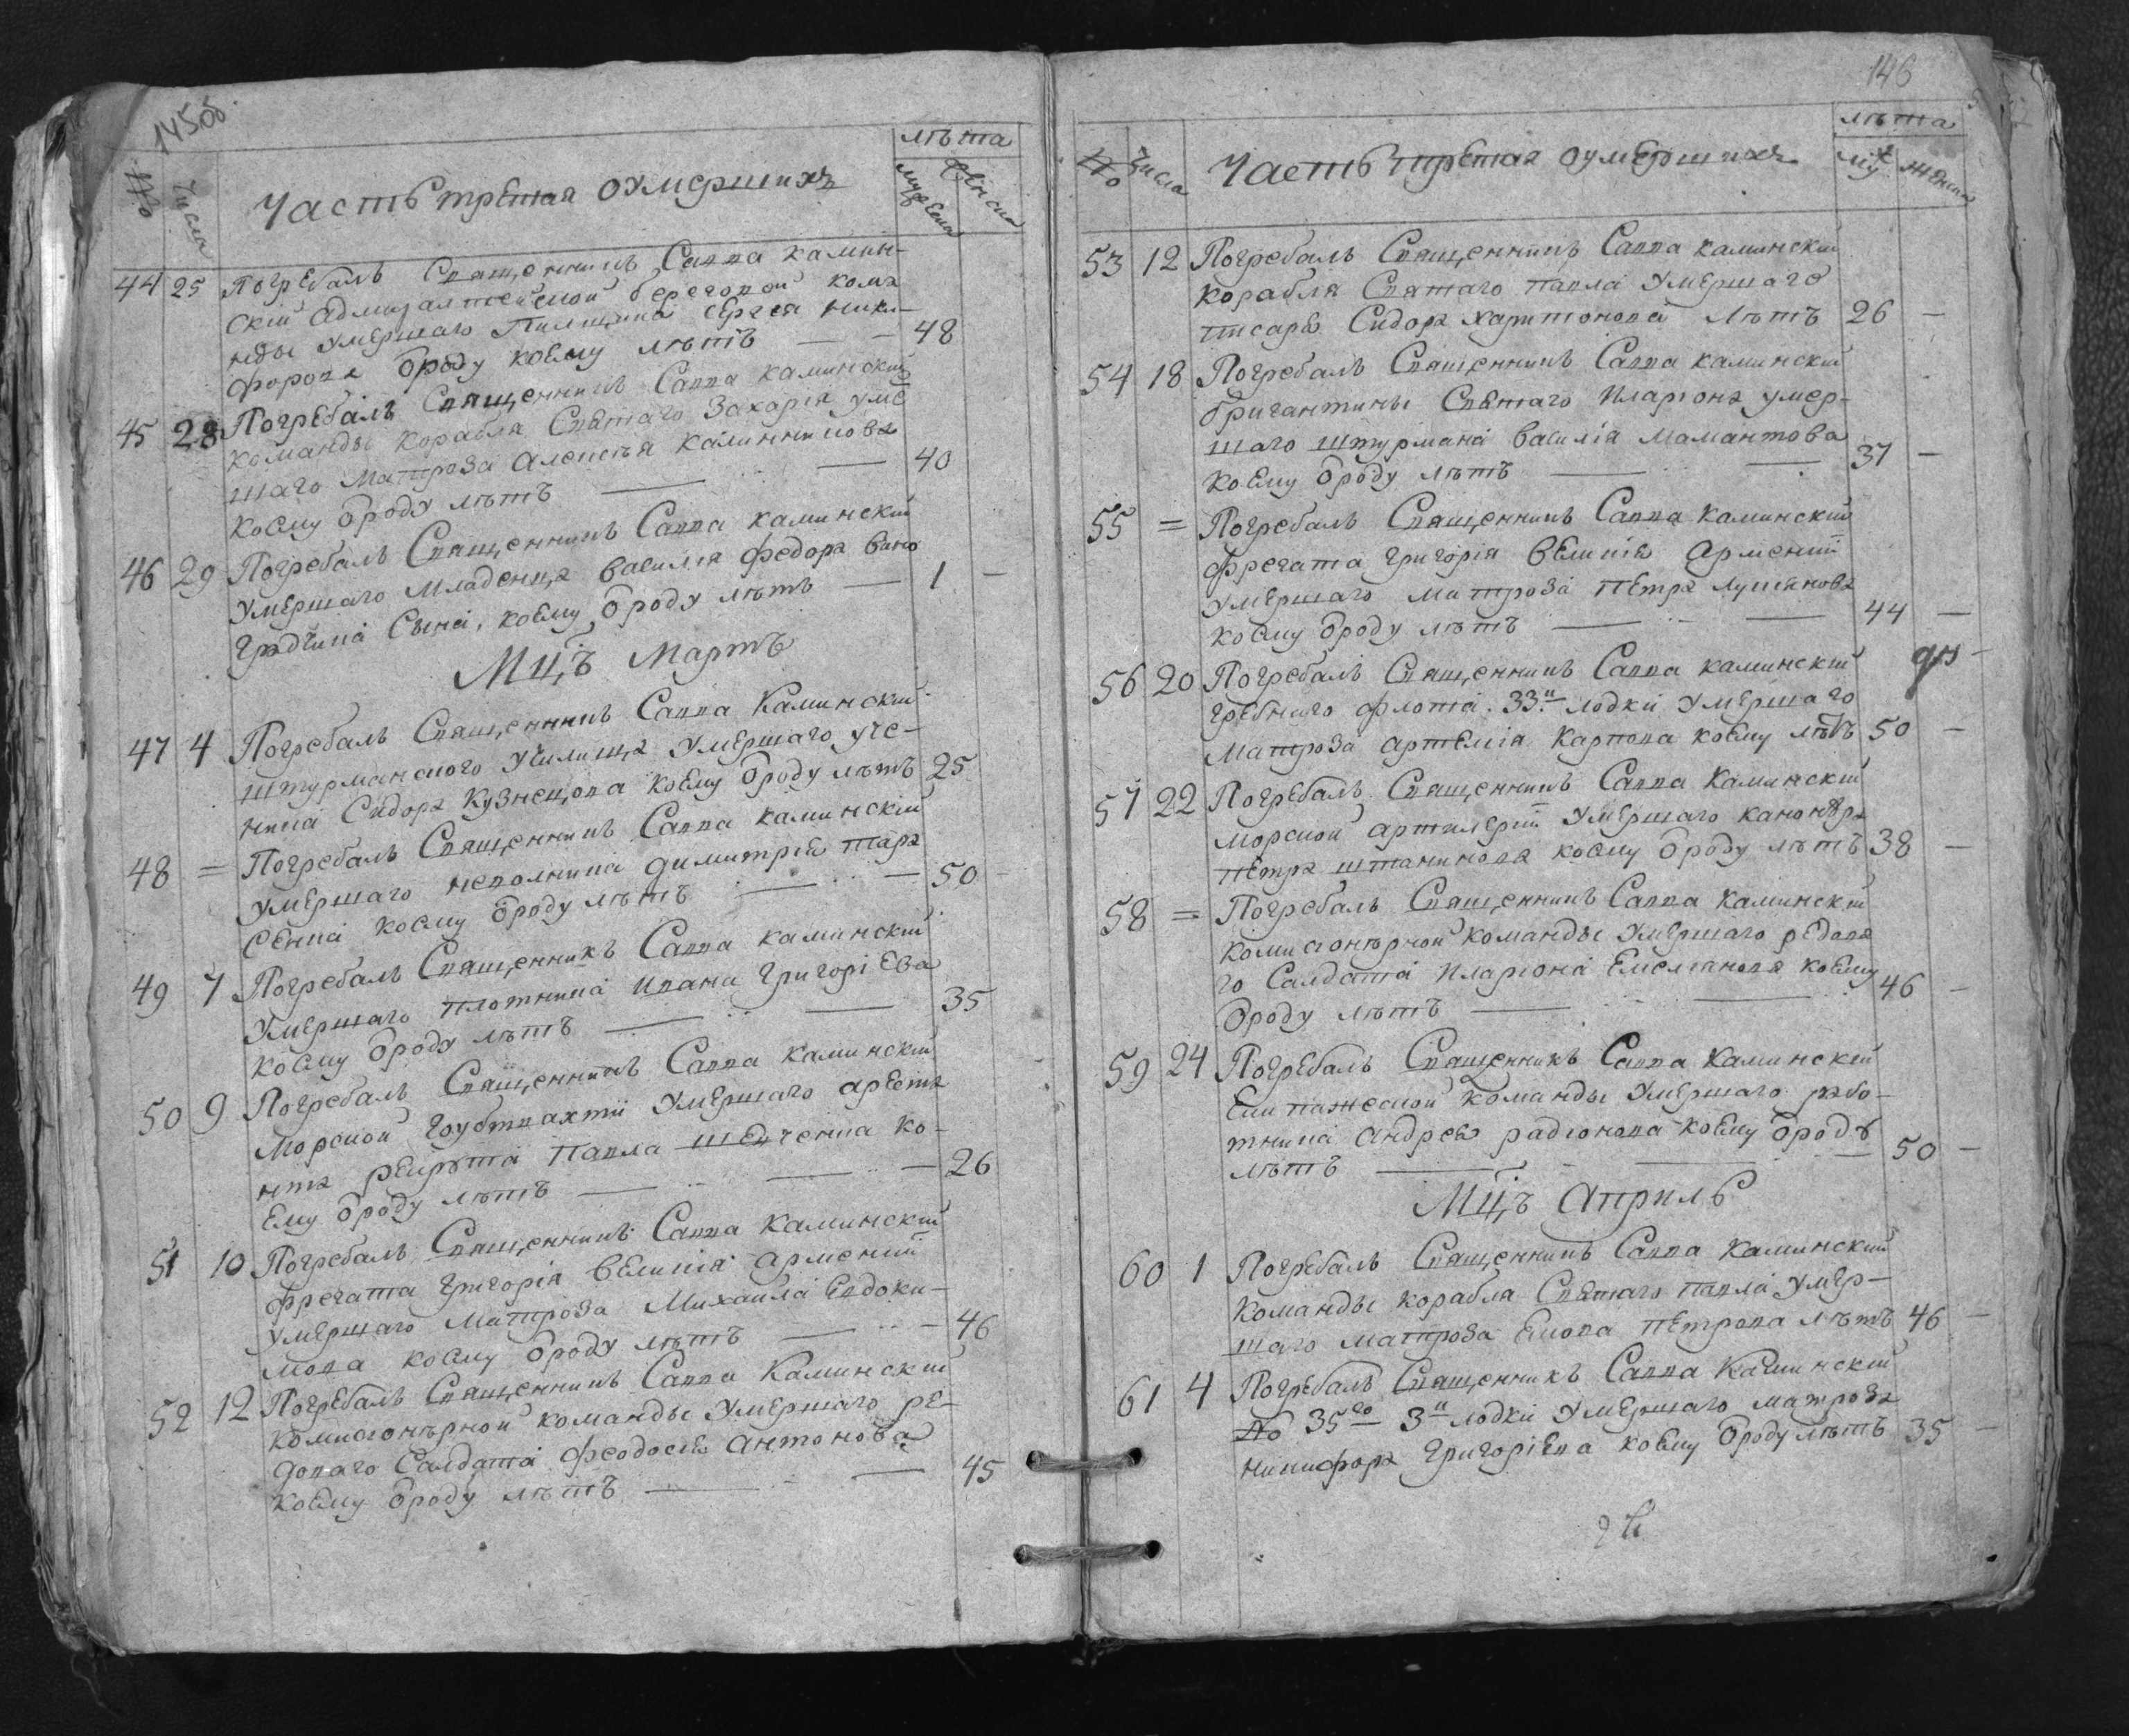 145об.
№
Числа
Часть третая оумершихъ
лѣта
мужеска
женска
44 25 Погребалъ Священникъ Савва камин-
скій адмиралтейской береговой кома
нды умершаго Пилщика Сергея ники-
форова ѿроду коему лѣтъ — — 48
45 28 Погребалъ Священникъ Савва каминский
команды корабля Святаго Захарія уме
шаго матроза алексѣя калинникова
коему ѿроду лѣтъ — — 40
46 29 Погребалъ Священникъ Савва каминский
умершаго младенца василія федора вино
градчика сына, коему ѿроду лѣтъ — 1 —
Мцъ Мартъ
47 4 Погребалъ Священникъ Савва Каминский
штурманского училища умершаго уче-
ника Сидора Кузнецова коему ѿроду лѣтъ 25
48 = Погребалъ Священникъ Савва каминскій
умершаго неполника димитрія тара
сенка коему ѿроду лѣтъ — — 50 —
49 7 Погребалъ Священникъ Савва каминский
умершаго плотника ивана григоріева
коему ѿроду лѣтъ — — 35
50 9 Погребалъ Священникъ Савва каминский
морской гоубтвахтіи умершаго ареста
нта рекрута павла шевченка ко-
ему ѿроду лѣтъ — — — 26
51 10 Погребалъ Священникъ Савва каминский
фрегата григорія великія арменіи
умершаго матроза Михаила Евдоки-
мова коему ѿроду лѣтъ — — 46
52 12 Погребалъ Священникъ Савва Каминский
комисіонѣрной команды умершаго ре-
доваго Салдата феодосія антонова
коему ѿроду лѣтъ — — 45
146
№
Числа
Часть третая оумершихъ
лѣта
муж
женска
53 12 Погребалъ Священникъ Савва каминский
корабля Святаго павла умершаго
писаря Сидора харитонова лѣтъ 26 —
54 18 Погребалъ Священникъ Савва каминский
бригантины Святаго Иларіона умер-
шаго штурмана василія мамантова
коему ѿроду лѣтъ — — 37 —
55 = Погребалъ Священникъ Савва каминский
фрегата григорія великія арменіи
умершаго матроза петра лукинова
коему ѿроду лѣтъ — — 44 —
56 20 Погребалъ Священникъ Савва каминский
гребнаго флота 33й лодки умершаго
матроза артемія карпова коему лѣтъ 50 —
57 22 Погребалъ Священникъ Савва каминский
морской артилеріи умершаго канонѣра
петра штаникова коему ѿроду лѣтъ 38 —
58 = Погребалъ Священникъ Савва каминский
комисіонѣрной команды умершаго редова
го Салдата иларіона Емелянова коему
ѿроду лѣтъ — — 46 —
59 24 Погребалъ Священникъ Савва каминский
Екипажеской команды умершаго рабо-
тника андрея радіонова коему ѿроду
лѣтъ — — — 50 —
Мцъ Априль
60 1 Погребалъ Священникъ Савва каминский
команды корабля Святаго павла умер-
шаго матроза Екова петрова лѣтъ 46 —
61 4 Погребалъ Священникъ Савва Каминский
№ 35го 3й лодки умершаго матроза
никифора григоріева коему ѿроду лѣтъ 35 —